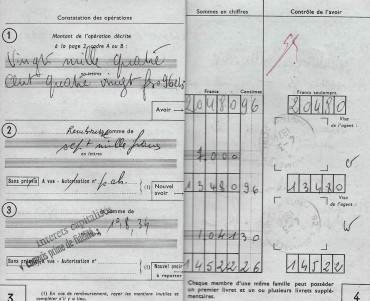 Constatation des opérations
Sommes en chiffres
Contrôle de l'avoir
1
Montant de l'opération décrite
à la page 2, cadre A ou B :
Vingt mille quatre
en lettres
Cent quatre vingt frs 96 cts
Francs Centimes
Francs seulement
Avoir
20480 96
20480
Visa
de l'agent :
2
Rembours somme de
sept mille francs
en lettres
7000
Sans préavis A vue - Autorisation n°
(1) Nouvel
avoir
13480 96
13480
Visa
de l'agent :
3
somme de
198,34
intérêts capitalisés
1041 30
Sans préavis A vue - Autorisation n°
(1) Nouvel avoir
à reporter
14522 26
14522
3
(1) En cas de remboursement, rayer les mentions inutiles et
compléter s'il y a lieu.
Chaque membre d'une même famille peut posséder
un premier livret et un ou plusieurs livrets supplé-
mentaires.
4